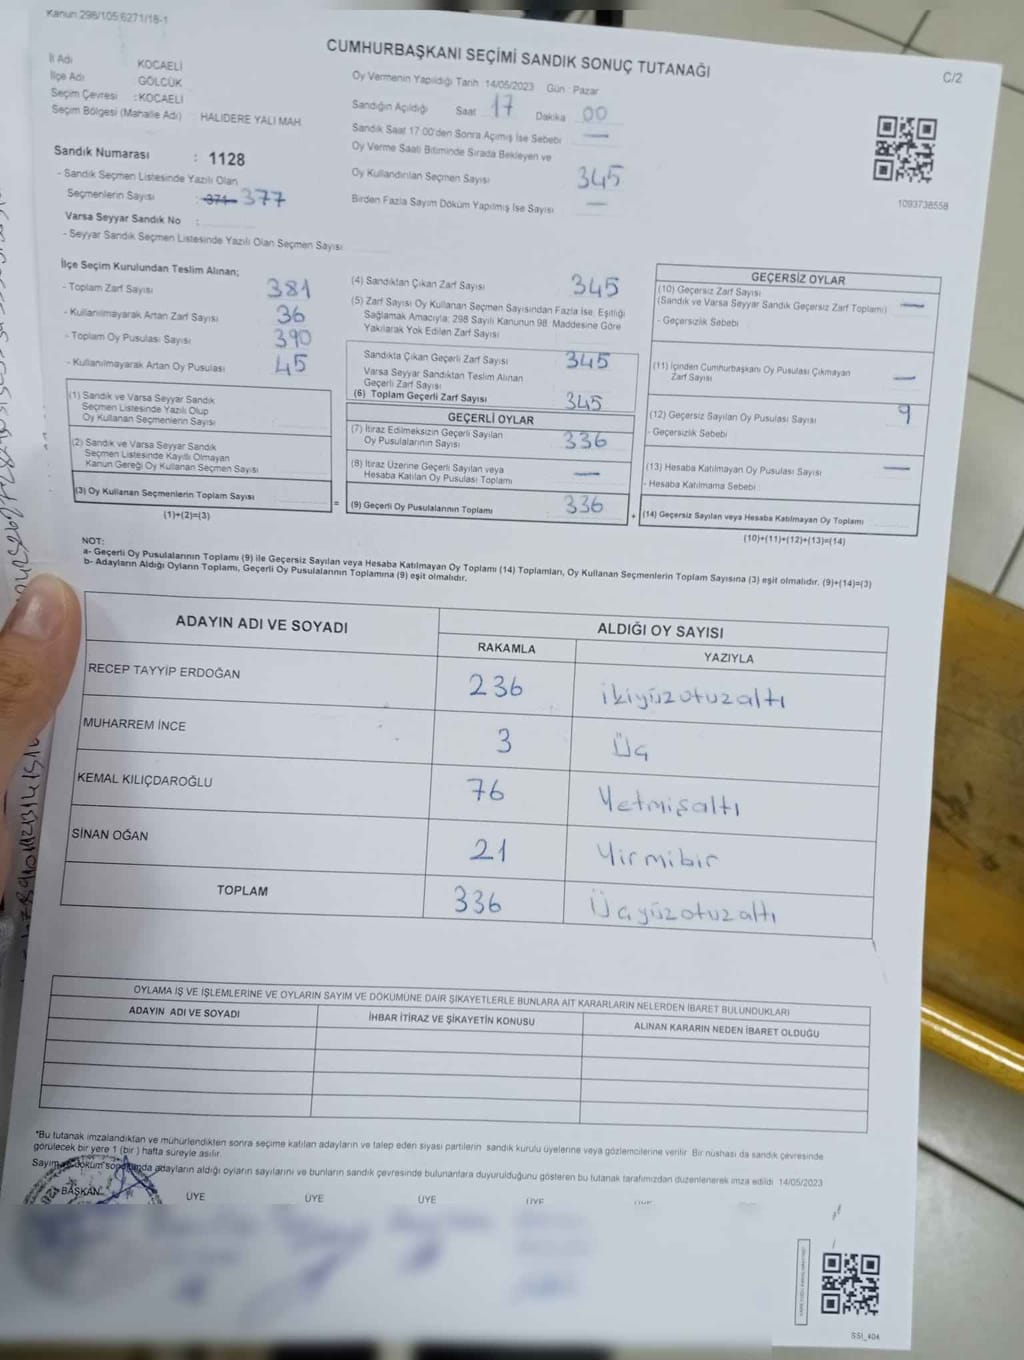 Kanun:298/105;6271/18-1
CUMHURBAŞKANI SEÇİMİ SANDIK SONUÇ TUTANAĞI
C/2
İl Adı KOCAELİ
İlçe Adı GÖLCÜK
Seçim Çevresi : KOCAELİ
Seçim Bölgesi (Mahalle Adı) HALIDERE YALI MAH.
Oy Vermenin Yapıldığı Tarih :14/05/2023 Gün : Pazar
Sandığın Açıldığı Saat 17 Dakika 00
Sandık Saat 17:00'den Sonra Açılmış İse Sebebi —
Oy Verme Saati Bitiminde Sırada Bekleyen ve
Oy Kullandırılan Seçmen Sayısı 345
Birden Fazla Sayım Döküm Yapılmış İse Sayısı —
1093738558
Sandık Numarası : 1128
- Sandık Seçmen Listesinde Yazılı Olan
Seçmenlerin Sayısı : 371 377
Varsa Seyyar Sandık No :
- Seyyar Sandık Seçmen Listesinde Yazılı Olan Seçmen Sayısı:
İlçe Seçim Kurulundan Teslim Alınan;
- Toplam Zarf Sayısı 381
- Kullanılmayarak Artan Zarf Sayısı 36
- Toplam Oy Pusulası Sayısı 390
- Kullanılmayarak Artan Oy Pusulası 45
(1) Sandık ve Varsa Seyyar Sandık
Seçmen Listesinde Yazılı Olup
Oy Kullanan Seçmenlerin Sayısı
(2) Sandık ve Varsa Seyyar Sandık
Seçmen Listesinde Kayıtlı Olmayan
Kanun Gereği Oy Kullanan Seçmen Sayısı
(3) Oy Kullanan Seçmenlerin Toplam Sayısı
(1)+(2)=(3)
=
(4) Sandıktan Çıkan Zarf Sayısı 345
(5) Zarf Sayısı Oy Kullanan Seçmen Sayısından Fazla İse, Eşitliği
Sağlamak Amacıyla; 298 Sayılı Kanunun 98. Maddesine Göre
Yakılarak Yok Edilen Zarf Sayısı
Sandıkta Çıkan Geçerli Zarf Sayısı 345
Varsa Seyyar Sandıktan Teslim Alınan
Geçerli Zarf Sayısı
(6) Toplam Geçerli Zarf Sayısı 345
GEÇERLİ OYLAR
(7) İtiraz Edilmeksizin Geçerli Sayılan
Oy Pusulalarının Sayısı 336
(8) İtiraz Üzerine Geçerli Sayılan veya
Hesaba Katılan Oy Pusulası Toplamı —
(9) Geçerli Oy Pusulalarının Toplamı 336
+
GEÇERSİZ OYLAR
(10) Geçersiz Zarf Sayısı
(Sandık ve Varsa Seyyar Sandık Geçersiz Zarf Toplamı) —
- Geçersizlik Sebebi
(11) İçinden Cumhurbaşkanı Oy Pusulası Çıkmayan
Zarf Sayısı —
(12) Geçersiz Sayılan Oy Pusulası Sayısı 9
- Geçersizlik Sebebi
(13) Hesaba Katılmayan Oy Pusulası Sayısı —
- Hesaba Katılmama Sebebi
(14) Geçersiz Sayılan veya Hesaba Katılmayan Oy Toplamı
(10)+(11)+(12)+(13)=(14)
NOT:
a- Geçerli Oy Pusulalarının Toplamı (9) ile Geçersiz Sayılan veya Hesaba Katılmayan Oy Toplamı (14) Toplamları, Oy Kullanan Seçmenlerin Toplam Sayısına (3) eşit olmalıdır. (9)+(14)=(3)
b- Adayların Aldığı Oyların Toplamı, Geçerli Oy Pusulalarının Toplamına (9) eşit olmalıdır.
ADAYIN ADI VE SOYADI ALDIĞI OY SAYISI
RAKAMLA YAZIYLA
RECEP TAYYİP ERDOĞAN 236 ikiyüzotuzaltı
MUHARREM İNCE 3 Üç
KEMAL KILIÇDAROĞLU 76 Yetmişaltı
SİNAN OĞAN 21 Yirmibir
TOPLAM 336 Üçyüzotuzaltı
OYLAMA İŞ VE İŞLEMLERINE VE OYLARIN SAYIM VE DÖKÜMÜNE DAİR ŞİKAYETLERLE BUNLARA AİT KARARLARIN NELERDEN İBARET BULUNDUKLARI
ADAYIN ADI VE SOYADI İHBAR İTİRAZ VE ŞİKAYETİN KONUSU ALINAN KARARIN NEDEN İBARET OLDUĞU
*Bu tutanak imzalandıktan ve mühürlendikten sonra seçime katılan adayların ve talep eden siyasi partilerin sandık kurulu üyelerine veya gözlemcilerine verilir. Bir nüshası da sandık çevresinde
görülecek bir yere 1 (bir) hafta süreyle asılır.
Sayım ve döküm sonucunda adayların aldığı oyların sayılarını ve bunların sandık çevresinde bulunanlara duyurulduğunu gösteren bu tutanak tarafımızdan düzenlenerek imza edildi. 14/05/2023
BAŞKAN ÜYE ÜYE ÜYE ÜYE ÜYE
SSI_404